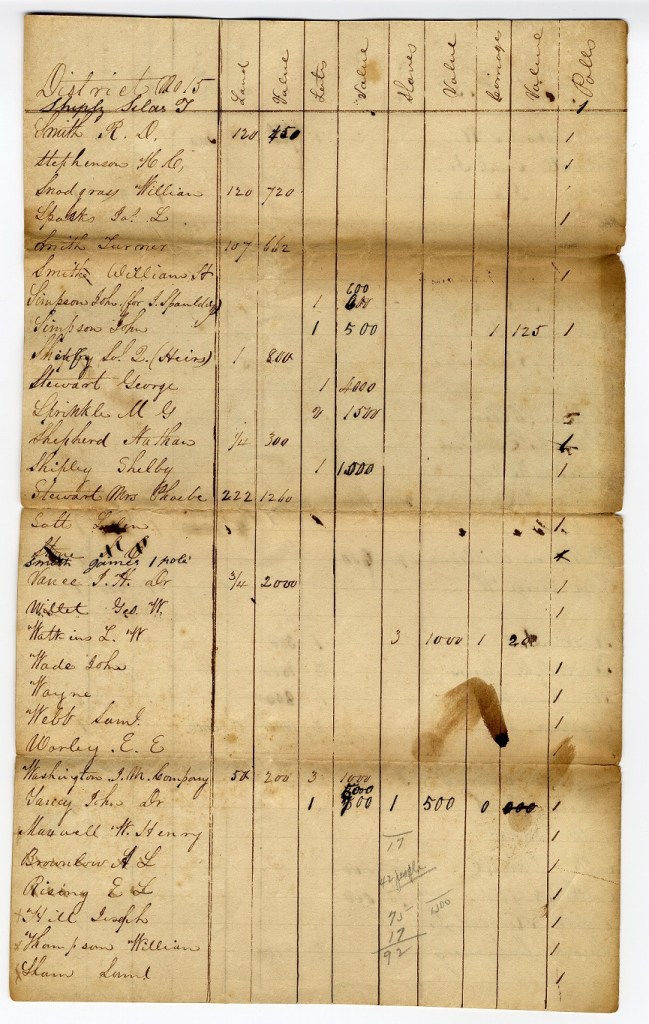 District No 15 Land Value Lots Value Slaves Value Carriages Value Polls
Shipley Silas T 1
Smith R. D. 120 450 1
Stephenson H C, 1
Snodgrass William 120 720
Sparks L 1
Smith Turner 107 662
Smith William H 1
600
Simpson John (for J. Spaulding) 1
Simpson John 1 500 1 125 1
Shipley L. (Heirs) 1 800
Stewart George 1 4000
Sprinkle M G 2 1500
Shepherd Nathan 1/4 300
Shipley Shelby 1 1000 1
Stewart Mrs Phoebe 222 1260
Salt 1
Smith James 1 pole
Vance J. H. Dr 3/4 2000 1
Willet Geo. W. 1
Watkins L. W 3 1000 1
Wade John 1
Wayne 1
Webb Saml. 1
Worley E. E 1
Washington I. M. Company 50 200 3 1000
5000
Yancey John Dr 1 1 500 0 000 1
Maxwell W. Henry 1
17
Brownlow A L 1
42 people
Rising E L 1
Hill Joseph 75 1
17
Thompson William 92 1
Sham Saml. 1